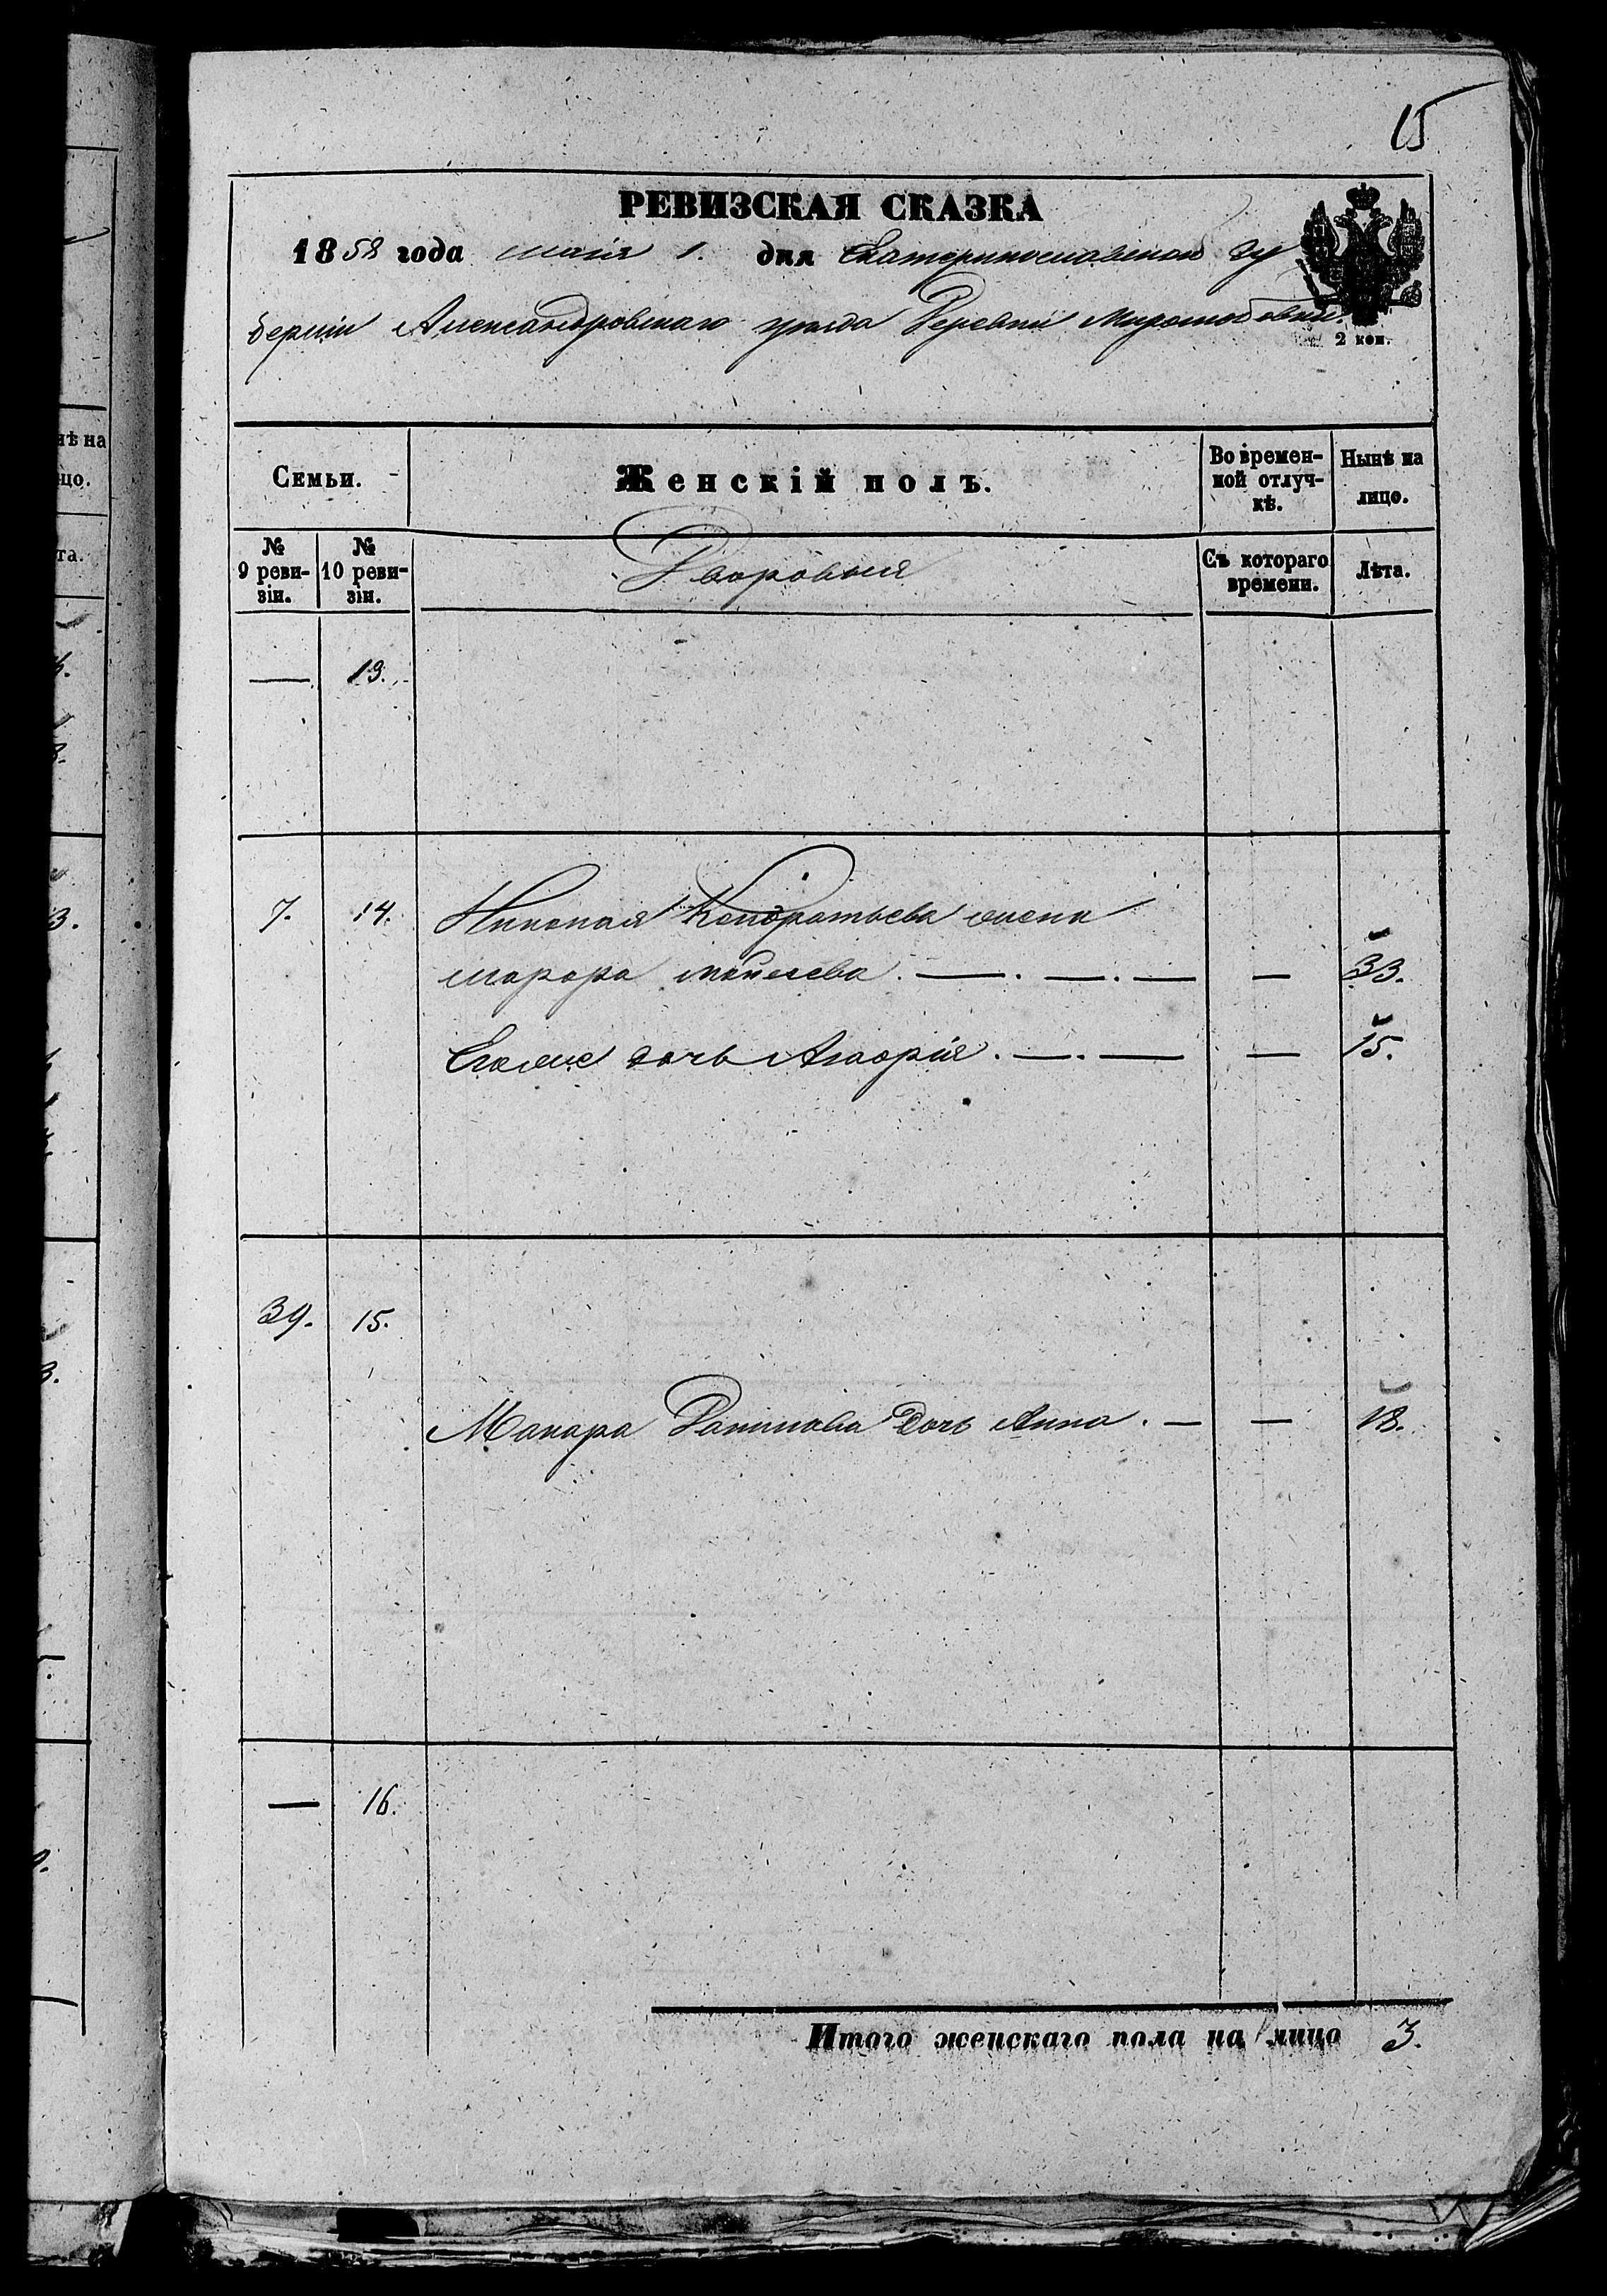 15
РЕВИЗСКАЯ СКАЗКА
1858 года маія 1. дня Екатеринославской Гу
берніи Александровскаго уѣзда Деревни
2 коп.
Семьи.
Женскій полъ.
Во времен-
ной отлуч-
кѣ.
Нынѣ на
лицо.
№
9 реви-
зіи.
№
10 реви-
зіи.
Дворовыя
Съ котораго
времени.
Лѣта.
— 13.
7. 14. Николая Кондратьева жена
Марфа Мойсеева . — . — . — — 33.
Егоже дочь . — . — — 15.
39. 15.
Макара дочь Анна . — — 18.
— 16.
Итого женскаго пола на лицо 3.
нѣ на
цо.
та.